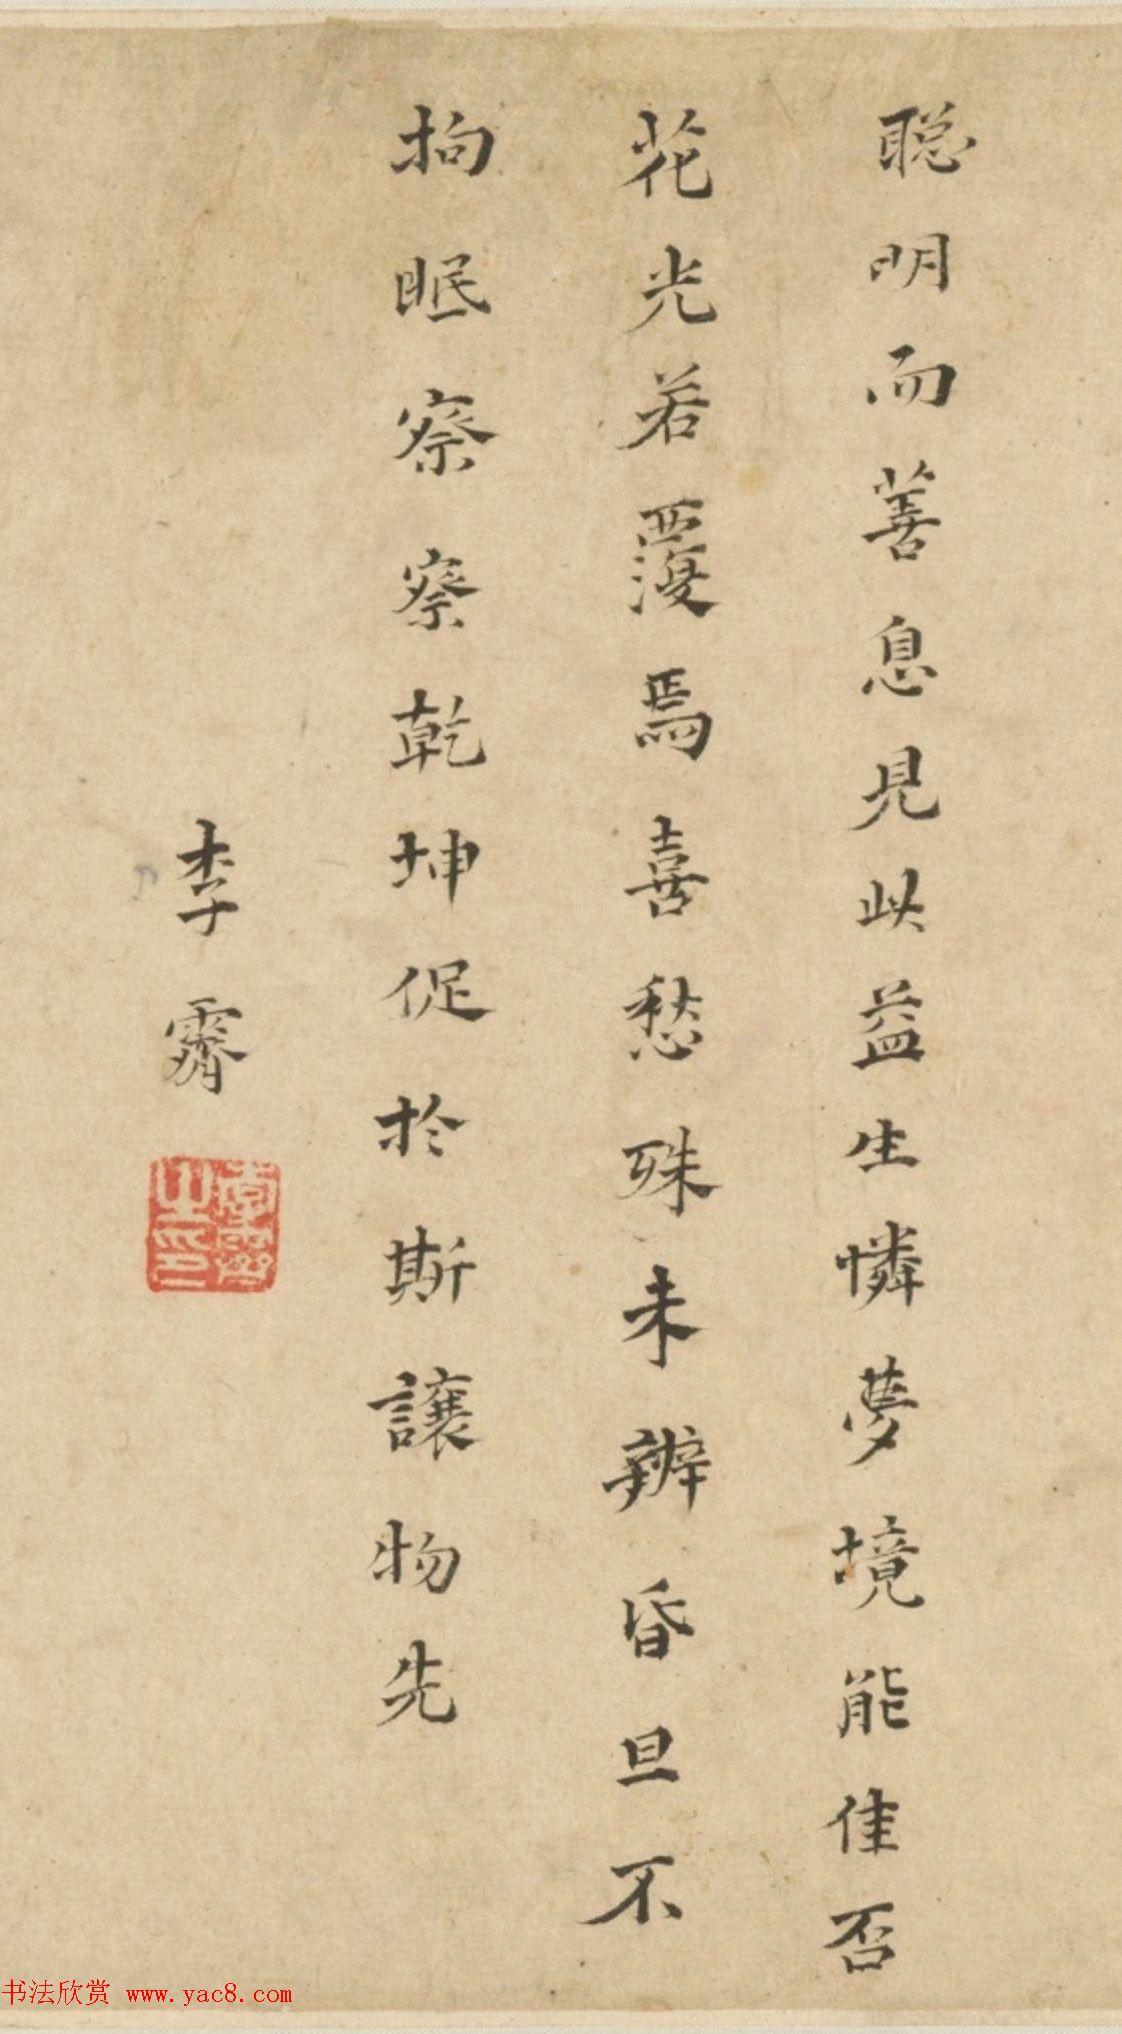 聡明而善息見此益生憐夢境能佳否
花光若覆焉喜愁殊未辨昏旦不
拘眠察察乾坤促於斯讓物先
李霽
李霽之印
书法欣赏 www.yac8.com